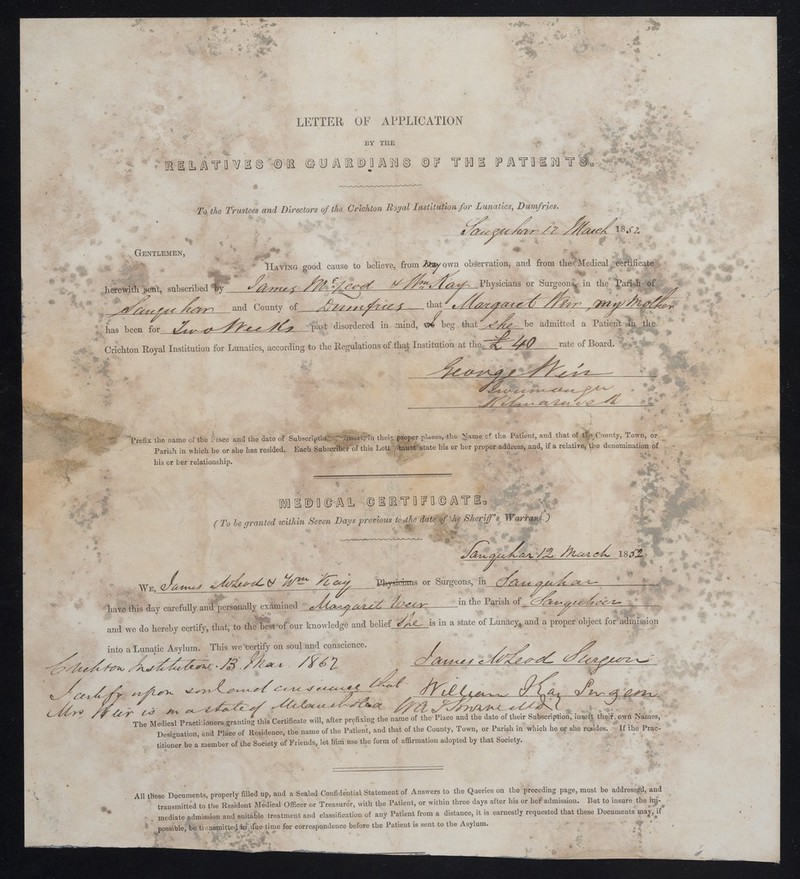 LETTER OF APPLICATION
BY THE
RELATIVES OR GUARDIANS OF THE PATIENTS.
To the Trustees and Directors of the Crichton Royal Institution for Lunatics, Dumfries.
Sanquhar 12 March 1852
GENTLEMEN,
HAVING good cause to believe, from my own observation, and from the Medical certificate
herewith sent, subscribed by James McLeod & Wm Kay Physicians or Surgeons, in the Parish of
Sanquhar and County of Dumfries that Margaret Weir, my Mother
has been for Two Weeks past disordered in mind, beg that she be admitted a Patient in the
Crichton Royal Institution for Lunatics, according to the Regulations of that Institution at the £40 rate of Board.
George Weir
Prefix the name of the and the date of in their proper places, the Name of the Patient, and that of the County, Town, or
Parish in which he or she has resided. Each Subscriber of this must state his or her proper address, and, if a relative, the denomination of
his or her relationship.
MEDICAL CERTIFICATE.
(To be granted within Seven Days previous to the date of the Sheriff's Warrant.)
Sanquhar 12 March 1852
WE, James McLeod & Wm Kay Physicians or Surgeons, in Sanquhar
have this day carefully and personally examined Margaret Weir in the Parish of Sanquhar
and we do hereby certify, that, to the best of our knowledge and belief she is in a state of Lunacy, and a proper object for admission
into a Lunatic Asylum. This we certify on soul and conscience.
James McLeod Surgeon
Crichton Institution. 13 Mar 1852
I certify upon soul and conscience that William Kay Surgeon
Mrs Weir is in a state of
The Medical Practitioners granting this Certificate will, after prefixing the name of the Place and the date of their Subscription, insert their own Names,
Designation, and Place of Residence, the name of the Patient, and that of the County, Town, or Parish in which he or she resides. If the Prac-
titioner be a member of the Society of Friends, let him use the form of affirmation adopted by that Society.
All these Documents, properly filled up, and a Sealed Confidential Statement of Answers to the Queries on the preceding page, must be addressed, and
transmitted to the Resident Medical Officer or Treasurer, with the Patient, or within three days after his or her admission. But to insure the im-
mediate admission and suitable treatment and classification of any Patient from a distance, it is earnestly requested that these Documents may, if
possible, be transmitted in due time for correspondence before the Patient is sent to the Asylum.